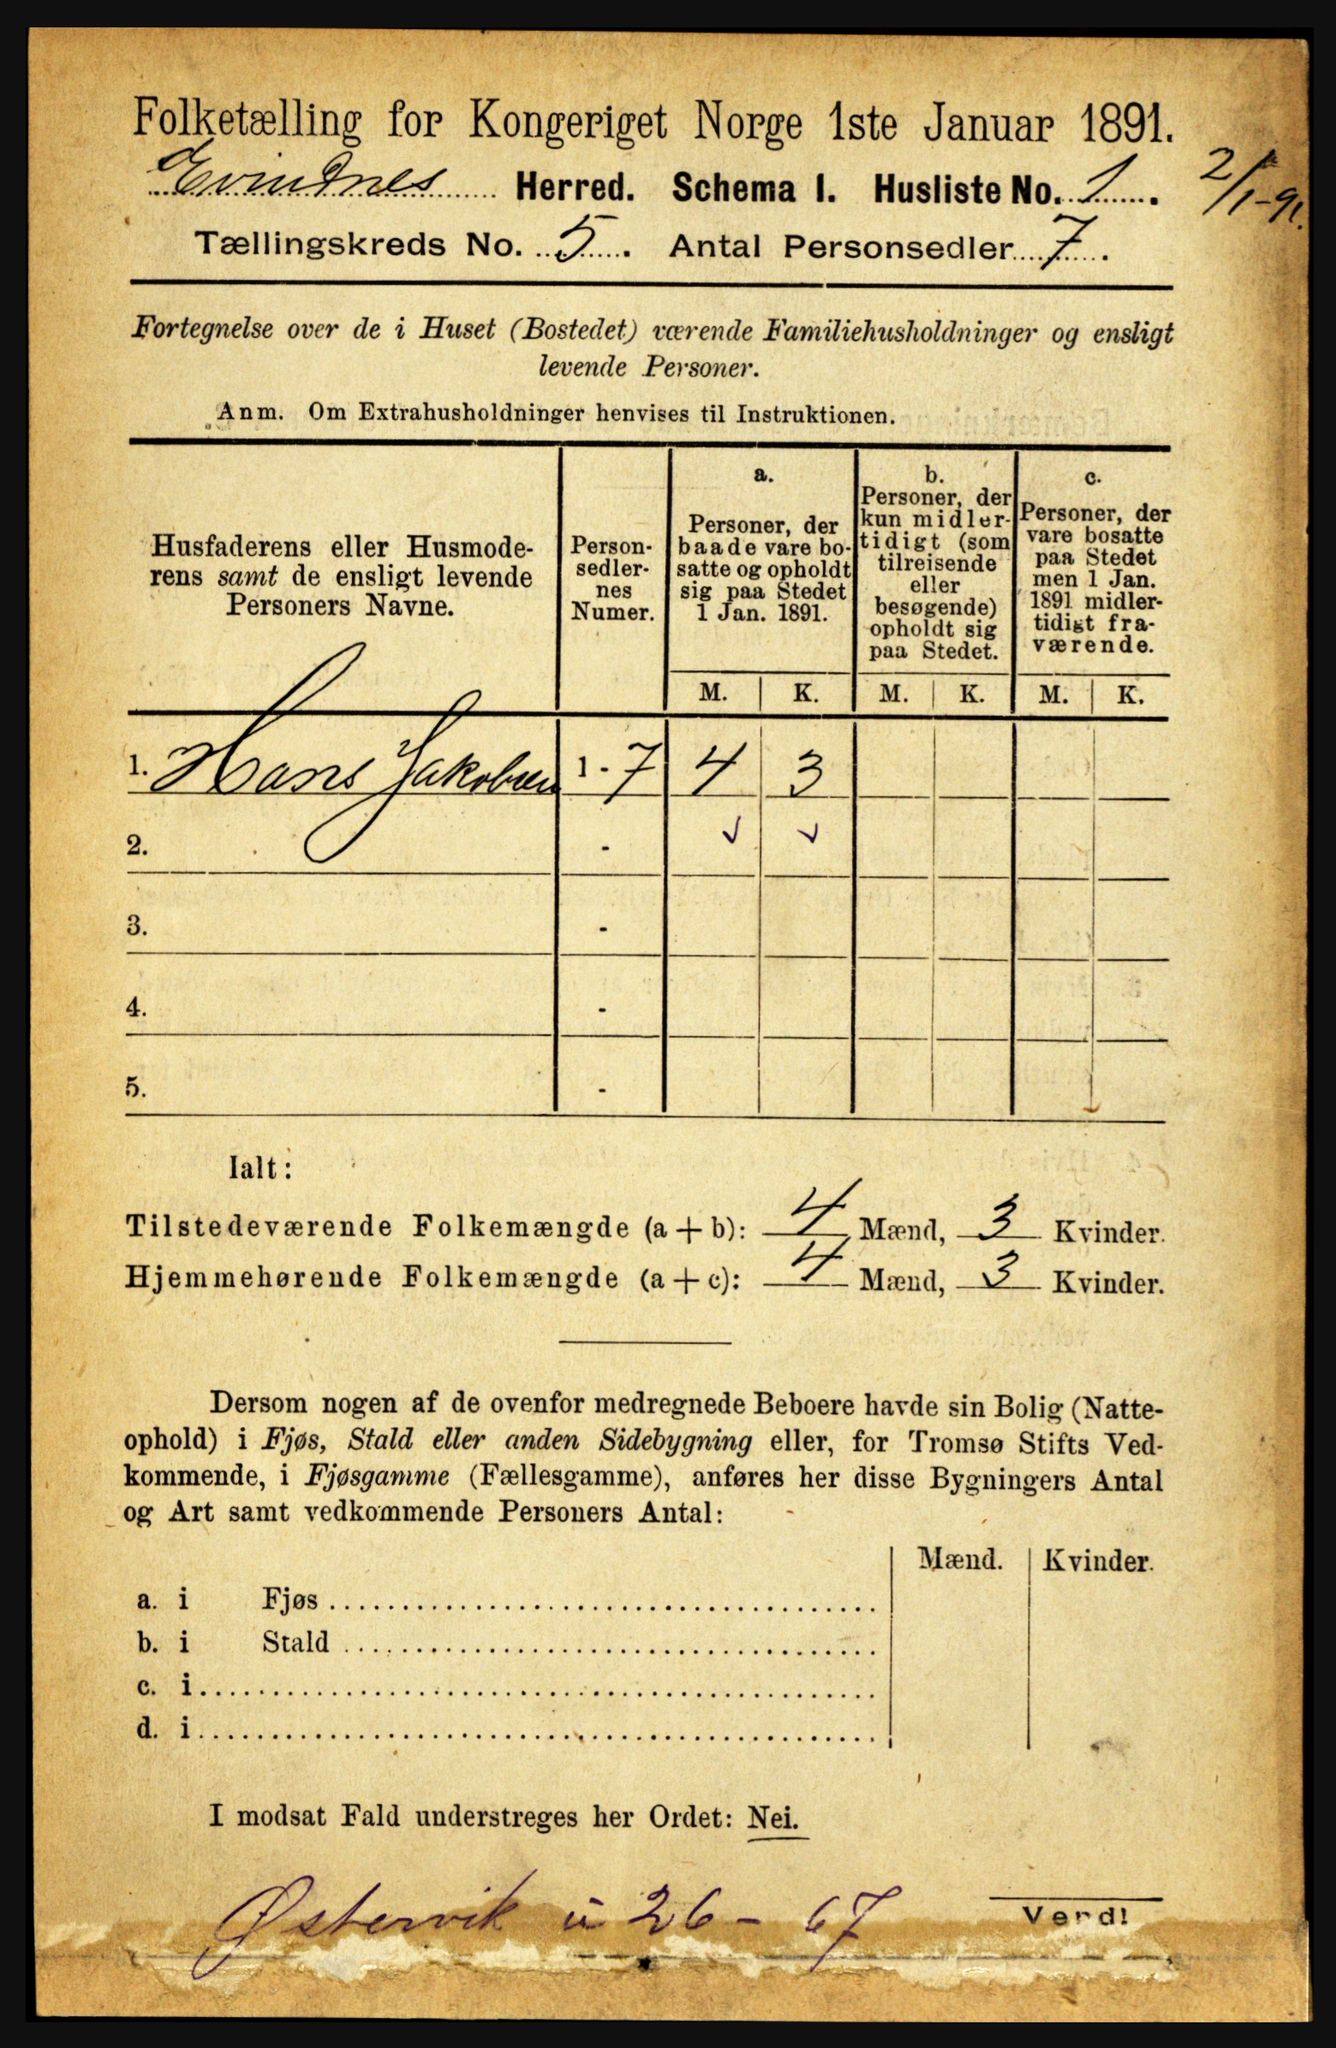 Folketælling for Kongeriget Norge 1ste Januar 1891.
Evindnes Herred. Schema I. Husliste No. 1. 2/1-91.
Tællingskreds No. 5. Antal Personsedler 7.
Fortegnelse over de i Huset (Bostedet) værende Familiehusholdninger og ensligt
levende Personer.
Anm. Om Extrahusholdninger henvises til Instruktionen.
Husfaderens eller Husmode-
rens samt de ensligt levende
Personers Navne.
Person-
sedler-
nes
Numer.
a.
Personer, der
baade vare bo-
satte og opholdt
sig paa Stedet
1 Jan. 1891.
b.
Personer, der
kun midler-
tidigt (som
tilreisende
eller
besøgende)
opholdt sig
paa Stedet.
c.
Personer, der
vare bosatte
paa Stedet
men 1 Jan.
1891 midler-
tidigt fra-
værende.
M. K. M. K. M. K.
1. Hans Jakobsen 1 - 7 4 3
2. - ✓ ✓
3. -
4. -
5. -
Ialt:
Tilstedeværende Folkemængde (a + b): 4 Mænd, 3 Kvinder.
Hjemmehørende Folkemængde (a + c): 4 Mænd, 3 Kvinder.
Dersom nogen af de ovenfor medregnede Beboere havde sin Bolig (Natte-
ophold) i Fjøs, Stald eller anden Sidebygning eller, for Tromsø Stifts Ved-
kommende, i Fjøsgamme (Fællesgamme), anføres her disse Bygningers Antal
og Art samt vedkommende Personers Antal:
Mænd. Kvinder.
a. i Fjøs
b. i Stald
c. i
d. i
I modsat Fald understreges her Ordet: Nei.
Østervik u 26 - 67
Vend!